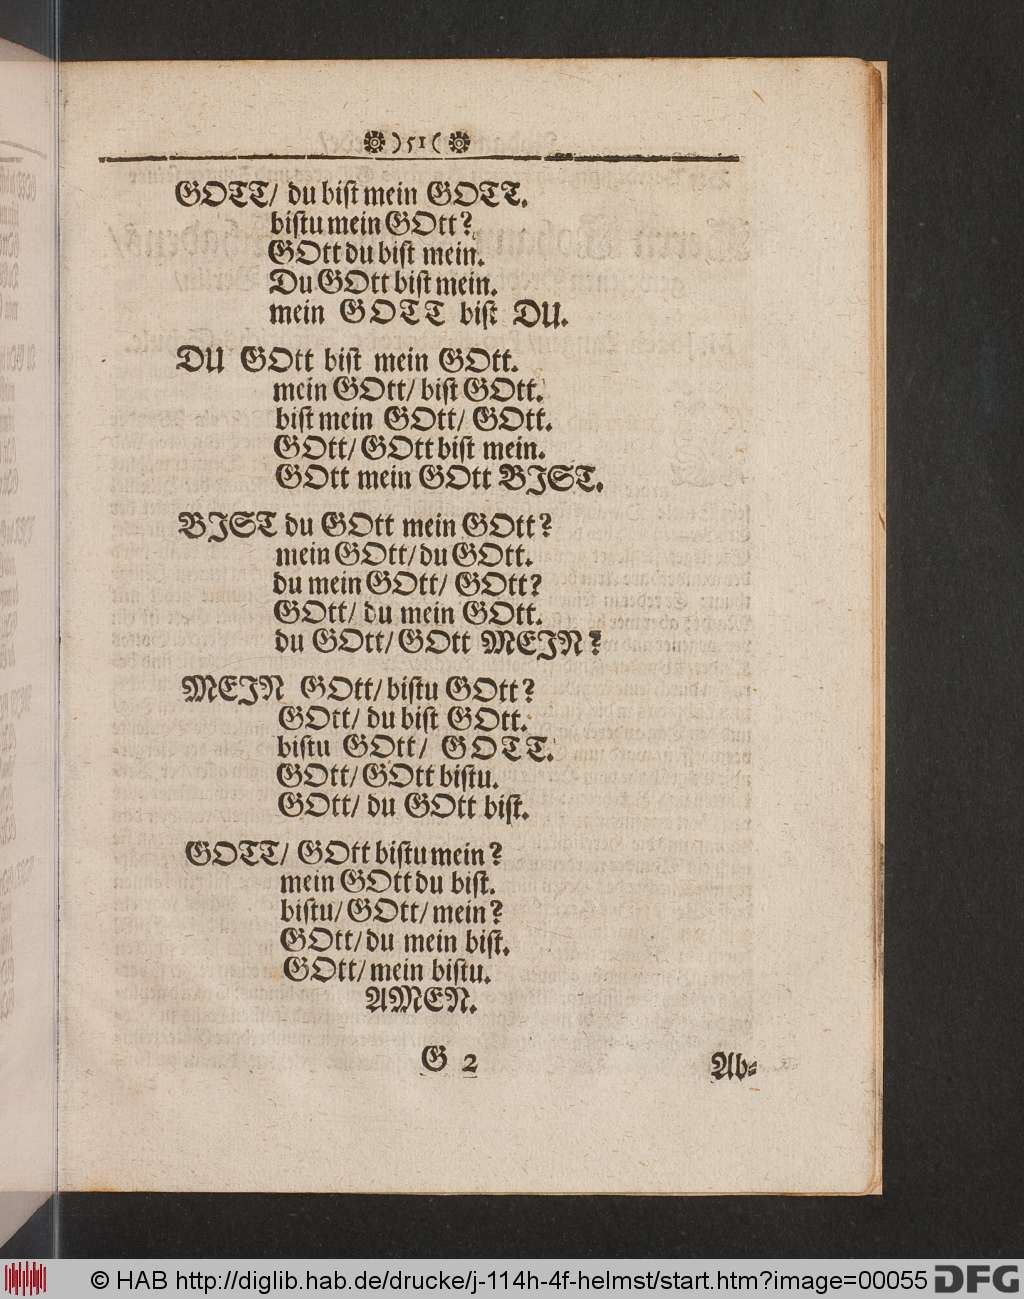 )51(
GOTT/ du bist mein GOTT.
bistu mein GOtt?
GOtt du bist mein.
Du GOtt bist mein.
mein GOTT bist DU.
DU GOtt bist mein GOtt.
mein GOtt/ bist GOtt.
bist mein GOtt/ GOtt.
GOtt/ GOtt bist mein.
GOtt mein GOtt BJST.
BJST du GOtt mein GOtt?
mein GOtt/ du GOtt.
du mein GOtt/ GOtt?
GOtt/ du mein GOtt.
du GOtt/ GOtt MEJN?
MEJN GOtt/ bistu GOtt?
GOtt/ du bist GOtt.
bistu GOtt/ GOTT.
GOtt/ GOtt bistu.
GOtt/ du GOtt bist.
GOTT/ GOtt bistu mein?
mein GOtt du bist.
bistu/ GOtt/ mein?
GOtt/ du mein bist.
GOtt/ mein bistu.
AMEN.
G 2 Ab=
© HAB http://diglib.hab.de/drucke/j-114h-4f-helmst/start.htm?image=00055 DFG